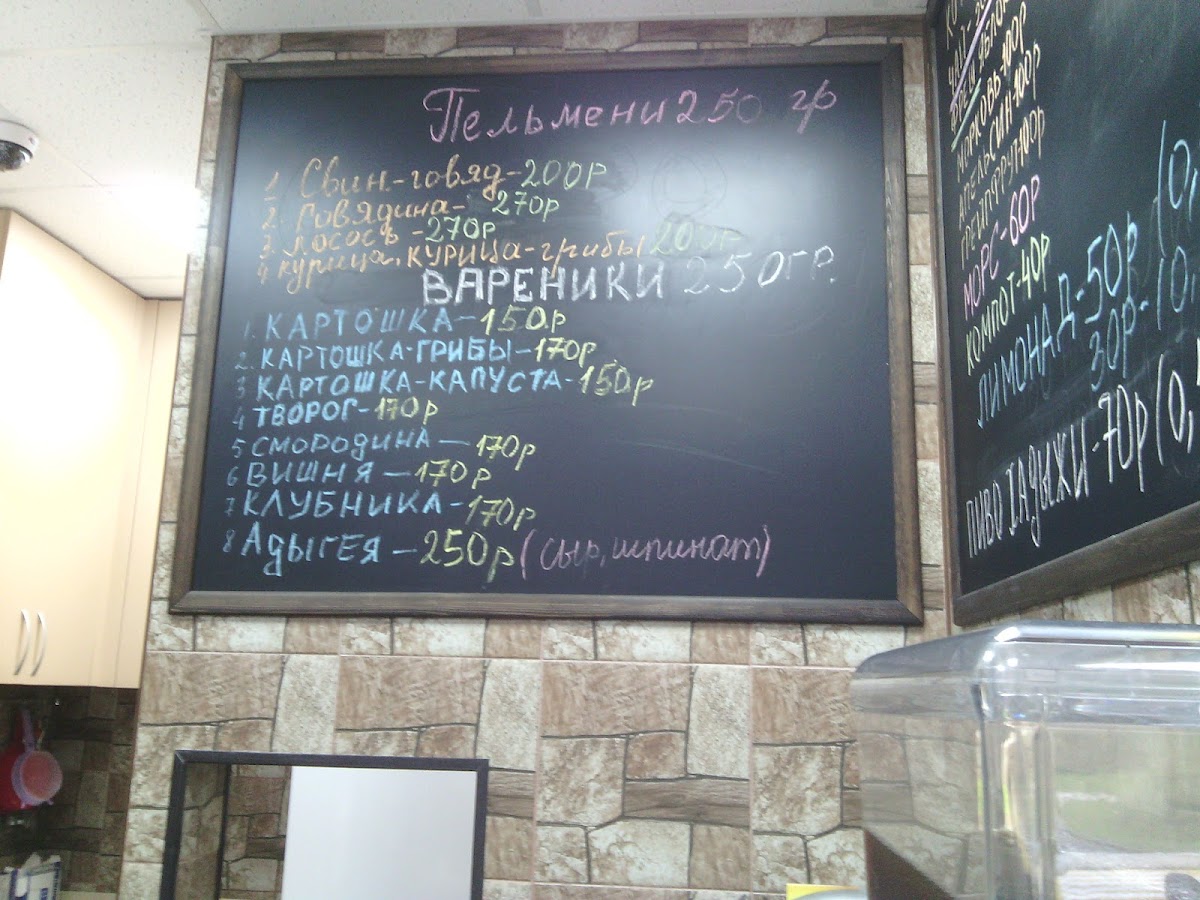 Пельмени 250 гр
1 Свин-говяд-200р
2. говядина- 270р
3 лосось -270р
4 курица, курица-грибы 200р
ВАРЕНИКИ 250гр.
1. КАРТОШКА-150р
2. КАРТОШКА-ГРИБЫ-170р
3 КАРТОШКА-КАПУСТА-150р
4 ТВОРОГ-170р
5 СМОРОДИНА-170р
6 ВИШНЯ-170р
7 КЛУБНИКА-170р
8 АДЫГЕЯ-250р (сыр, шпинат)
МОРКОВЬ-100р
АПЕЛЬСИН-100р
ГРЕЙПФРУТ-100р
МОРС-60р
КОМПОТ-40р
ЛИМОНАД-50р (0,
30р-(0,
ПИВО ХАДЫЖИ-70р (0,